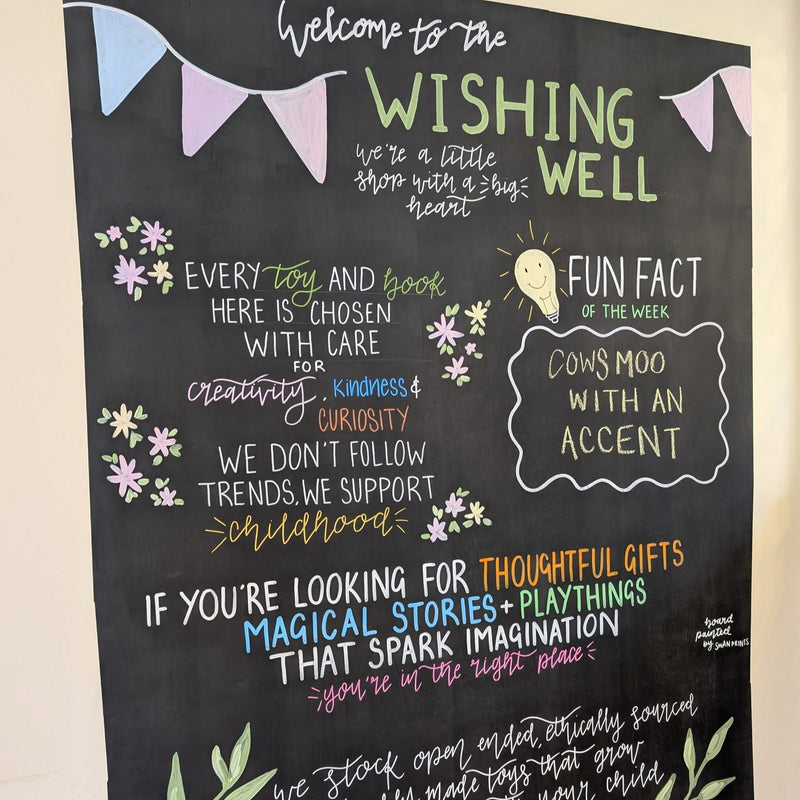 Welcome to the
WISHING
WELL
we're a little
shop with a big
heart
EVERY toy AND book
HERE IS CHOSEN
WITH CARE
FOR
creativity, kindness &
CURIOSITY
WE DON'T FOLLOW
TRENDS, WE SUPPORT
childhood
FUN FACT
OF THE WEEK
COWS MOO
WITH AN
ACCENT
IF YOU'RE LOOKING FOR THOUGHTFUL GIFTS
MAGICAL STORIES + PLAYTHINGS
THAT SPARK IMAGINATION
you're in the right place
board
painted
by SWANPRINTS
we stock open ended, ethically sourced
made toys that grow
your child